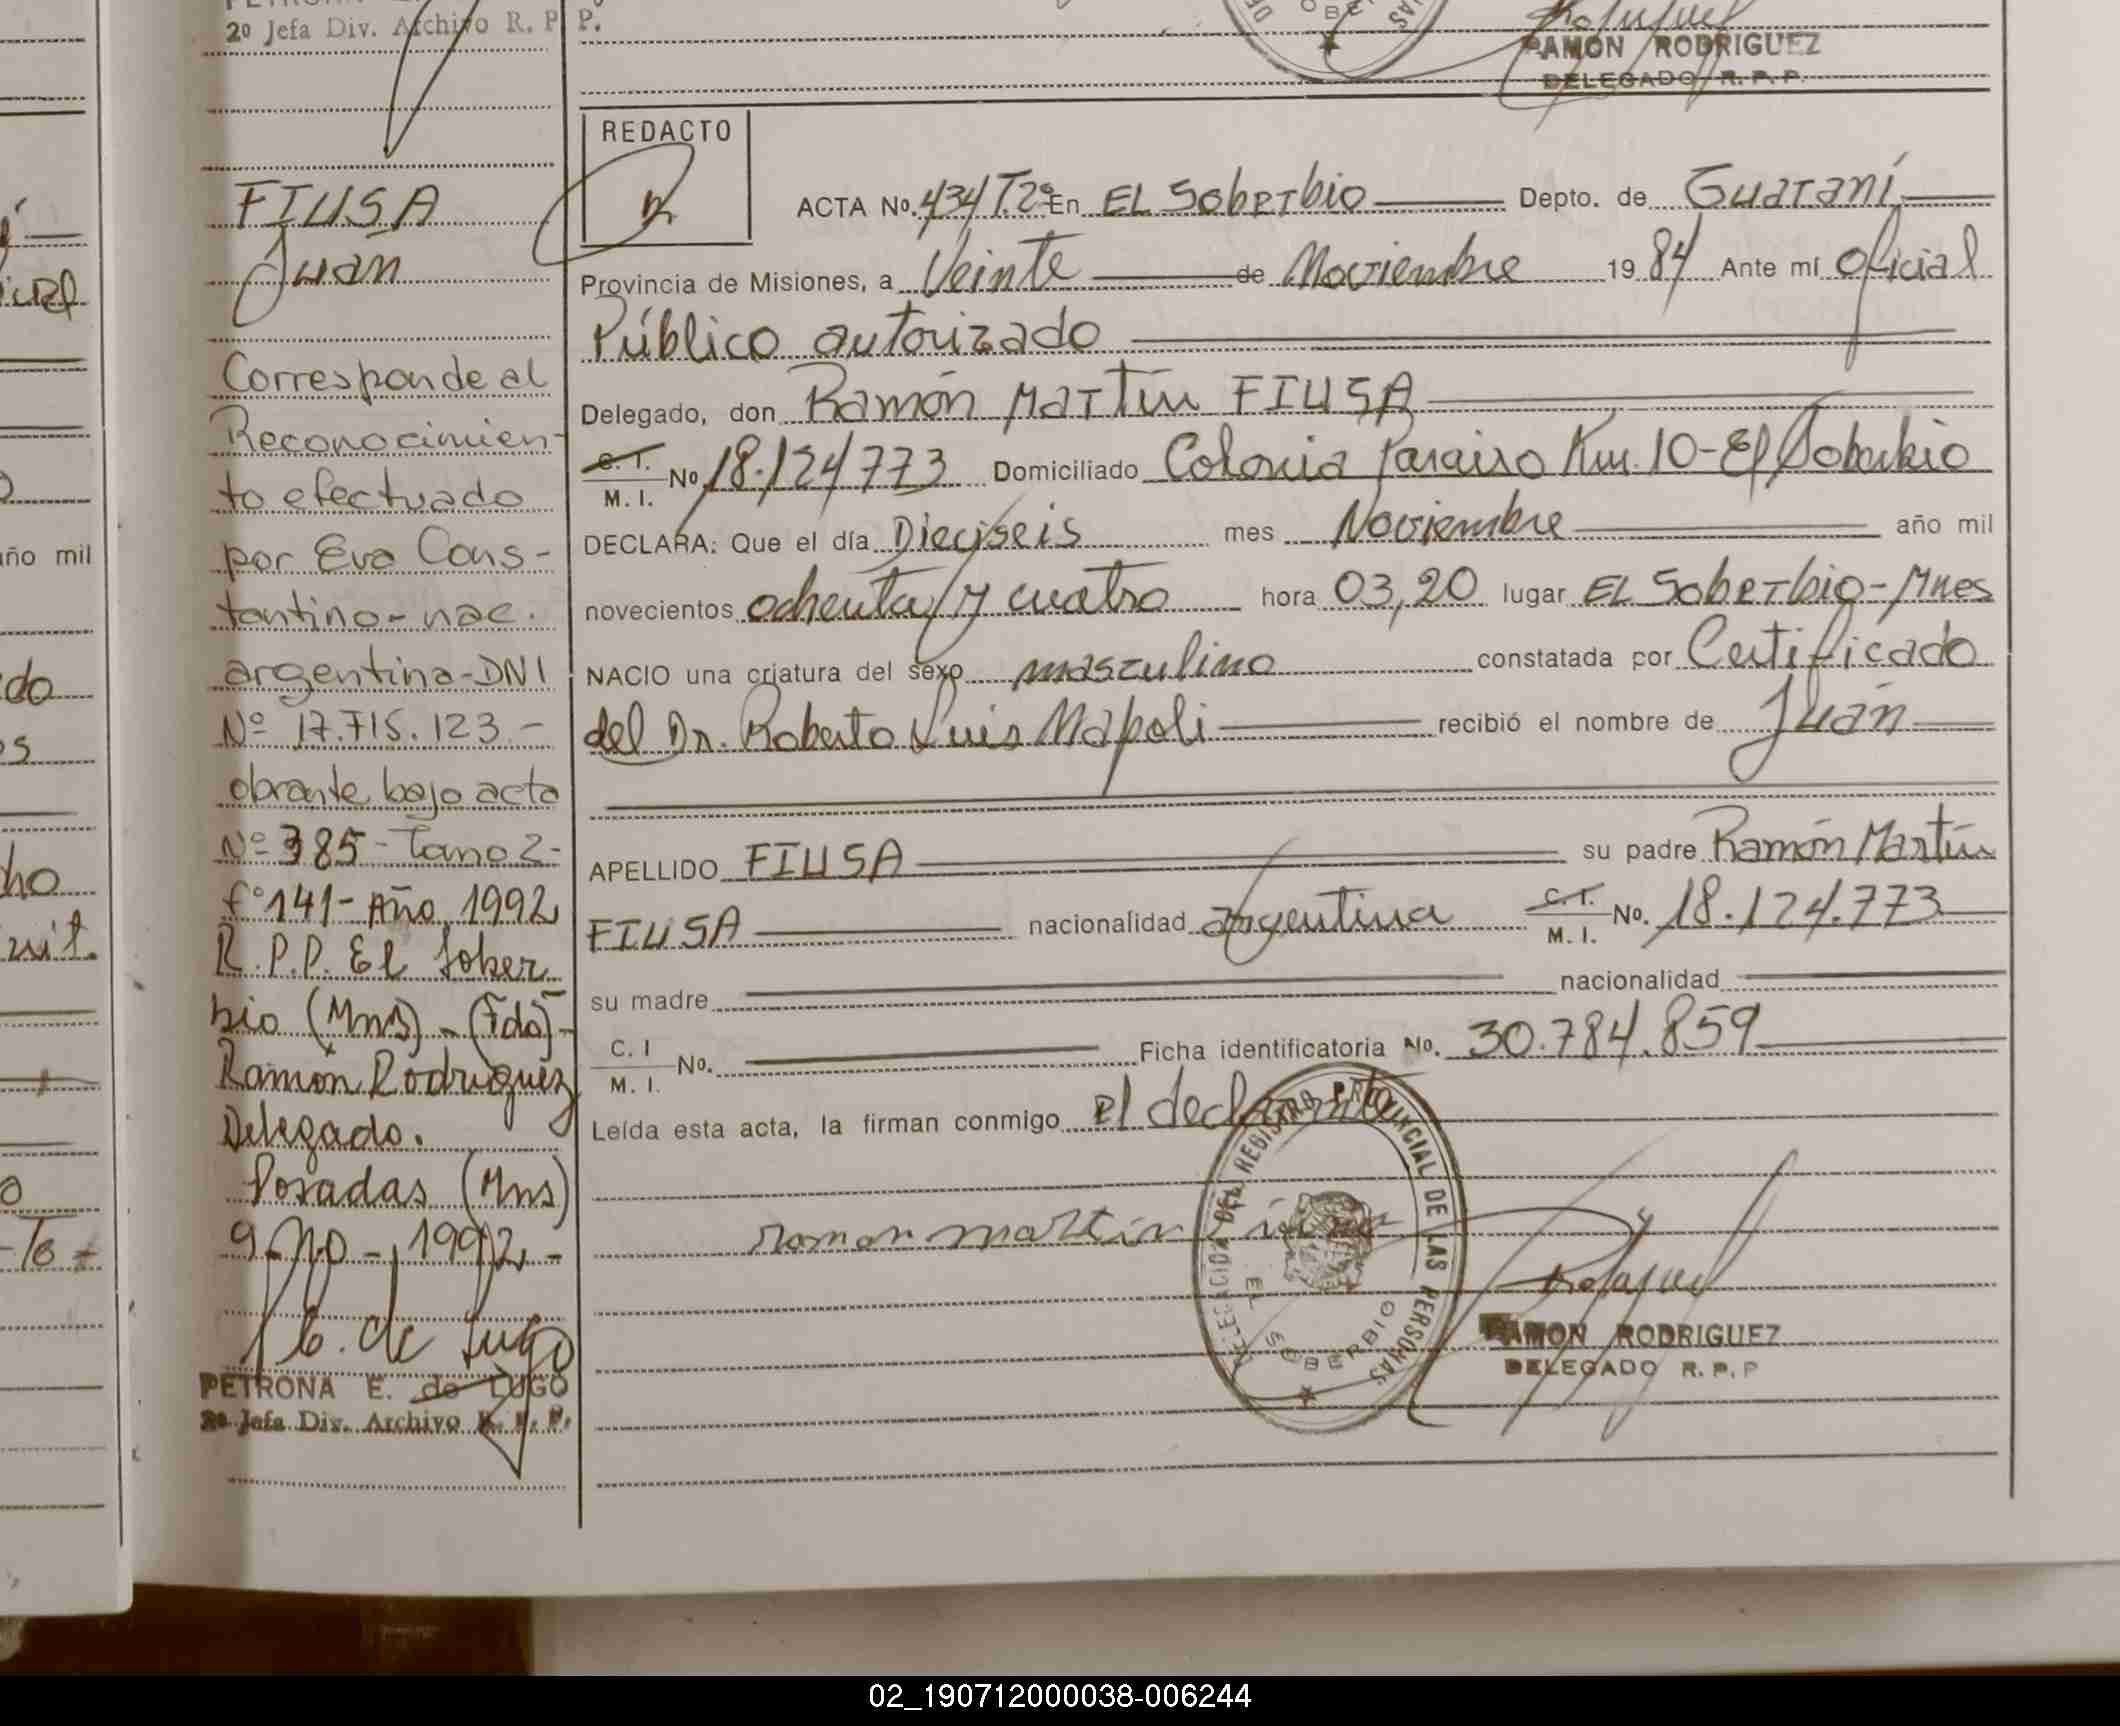 2º Jefa Div. Archivo R. P. P.
RAMON RODRIGUEZ
DELEGADO R. P. P.
FIUSA
Juan
Corresponde al
Reconocimien-
to efectuado
por Eva Cons-
tantino - nac.
argentina - DNI
Nº 17.715.123.-
obrante bajo acta
Nº 385 - Tomo 2-
fº 141 - Año 1992
R.P.P. El Sober
bio (Mns) - (Fdo)-
Ramón Rodriguez
Delegado.
Posadas (Mns)
1992.-
PETRONA E. de LUGO
2º Jefa Div. Archivo R. P. P.
REDACTO
ACTA Nº. 434 T.2º En EL SOberbio Depto. de Guaraní
Provincia de Misiones, a Veinte de Noviembre 1984 Ante mí Oficial
Público autorizado
Delegado, don Ramón Martín FIUSA
C. I.
M. I. Nº 18.124773 Domiciliado Colonia Paraiso Km. 10 - El Soberbio
DECLARA: Que el día Dieciseis mes Noviembre año mil
novecientos ochenta y cuatro hora 03,20 lugar EL SOberbio - Mnes
NACIO una criatura del sexo masculino constatada por Certificado
del Dr. Roberto Luis Napoli recibió el nombre de Juan
APELLIDO FIUSA su padre Ramón Martín
FIUSA nacionalidad argentina C. I. M. I. No. 18.124.773
su madre nacionalidad
C. I
M. I. Nº. Ficha identificatoria No. 30.784.859
Leída esta acta, la firman conmigo el declarante
ramon martin
DELEGACION DEL REGISTRO PROVINCIAL DE LAS PERSONAS
EL SOBERBIO
RAMON RODRIGUEZ
DELEGADO R. P. P
año mil
02_190712000038-006244